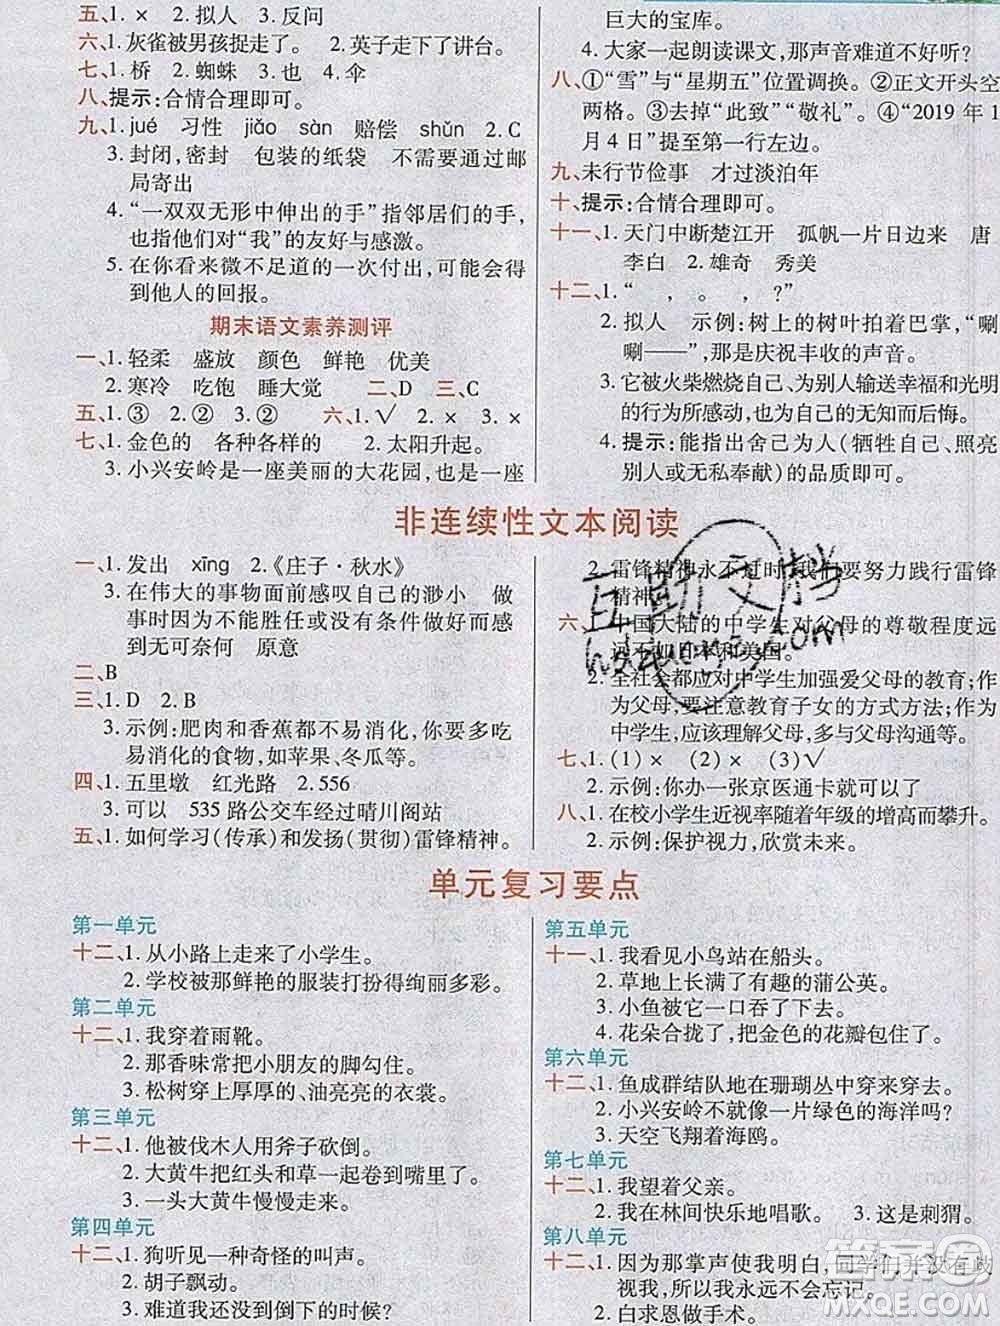 五、1. × 2. 拟人 3. 反问
六、1. 灰雀被男孩捉走了。 2. 英子走下了讲台。
七、1. 桥 2. 蜘蛛 3. 也 4. 伞
八、提示:合情合理即可。
九、1. jué 习性 jiǎo sàn 赔偿 shǔn 2. C
3. 封闭,密封 包装的纸袋 不需要通过邮
局寄出
4. “一双双无形中伸出的手”指邻居们的手,
也指他们对“我”的友好与感激。
5. 在你看来微不足道的一次付出,可能会得
到他人的回报。
期末语文素养测评
一、1. 轻柔 盛放 颜色 鲜艳 优美
2. 寒冷 吃饱 睡大觉 二、D 三、C
五、1. ③ 2. ② 3. ② 六、1. √ 2. × 3. ×
七、1. 金色的 各种各样的 2. 太阳升起。
3. 小兴安岭是一座美丽的大花园,也是一座
巨大的宝库。
4. 大家一起朗读课文,那声音难道不好听?
八、①“雪”与“星期五”位置调换。②正文开头空
两格。③去掉“此致”“敬礼”。④“2019 年 1
月 4 日”提至第一行左边。
九、未行节俭事 才过淡泊年
十、提示:合情合理即可。
十一、1. 天门中断楚江开 孤帆一片日边来 唐
李白 2. 雄奇 秀美
十二、1. “ , 。 , ?”
2. 拟人 示例:树上的树叶拍着巴掌,“唰
唰——”,那是庆祝丰收的声音。
3. 它被火柴燃烧自己、为别人输送幸福和光明
的行为所感动,也为自己的无知而后悔。
4. 提示:能指出舍己为人(牺牲自己、照亮
别人或无私奉献)的品质即可。
非连续性文本阅读
一、1. 发出 xīng 2.《庄子·秋水》
3. 在伟大的事物面前感叹自己的渺小 做
事时因力不能胜任或没有条件做而感到
无可奈何 原意
二、B
三、1. D 2. B
3. 示例:肥肉和香蕉都不易消化,我要少吃
易消化的食物,如苹果、冬瓜等。
四、1. 五里墩 红光路 2. 556
3. 可以 535 路公交车经过晴川阁站
五、1. 如何学习(传承)和发扬(贯彻)雷锋精神。
2. 雷锋精神永不过时,我们要努力践行雷锋
精神。
六、1. 中国大陆的中学生对父母的尊敬程度远
远不如日本和美国。
2. 全社会都应对中学生加强爱父母的教育;作
为父母,要注意教育子女的方式方法;作为
中学生,应该理解父母,多与父母沟通等。
七、1. (1) × (2) × (3) √
2. 示例:你办一张京医通卡就可以了。
八、1. 在校小学生近视率随着年级的增高而攀升。
2. 示例:保护视力,欣赏未来。
互动文档
hdzuoye.com
单元复习要点
第一单元
十二、1. 从小路上走来了小学生。
2. 学校被那鲜艳的服装打扮得绚丽多彩。
第二单元
十二、1. 我穿着雨靴。
2. 那香味常常把小朋友的脚勾住。
3. 松树穿上厚厚的、油亮亮的衣裳。
第三单元
十二、1. 他被伐木人用斧子砍倒。
2. 大黄牛把红头和草一起卷到嘴里。
3. 一头大黄牛慢慢走来。
第四单元
十二、1. 狗听见一种奇怪的叫声。
2. 胡子飘动。
3. 难道我还没到倒下的时候?
第五单元
十一、1. 我看见小鸟站在船头。
2. 草地上长满了有趣的蒲公英。
3. 小鱼被它一口吞了下去。
4. 花朵合拢了,把金色的花瓣包住了。
第六单元
十二、1. 鱼成群结队地在珊瑚丛中穿来穿去。
2. 小兴安岭难道不像一片绿色的海洋吗?
3. 天空飞翔着海鸥。
第七单元
十二、1. 我望着父亲。
2. 我在林间快乐地唱歌。 3. 这是刺猬。
第八单元
十二、1. 因为那掌声使我明白,同学们并没有歧
视我,所以我永远不会忘记。
2. 白求恩做手术。
答案圈
MXQE.COM